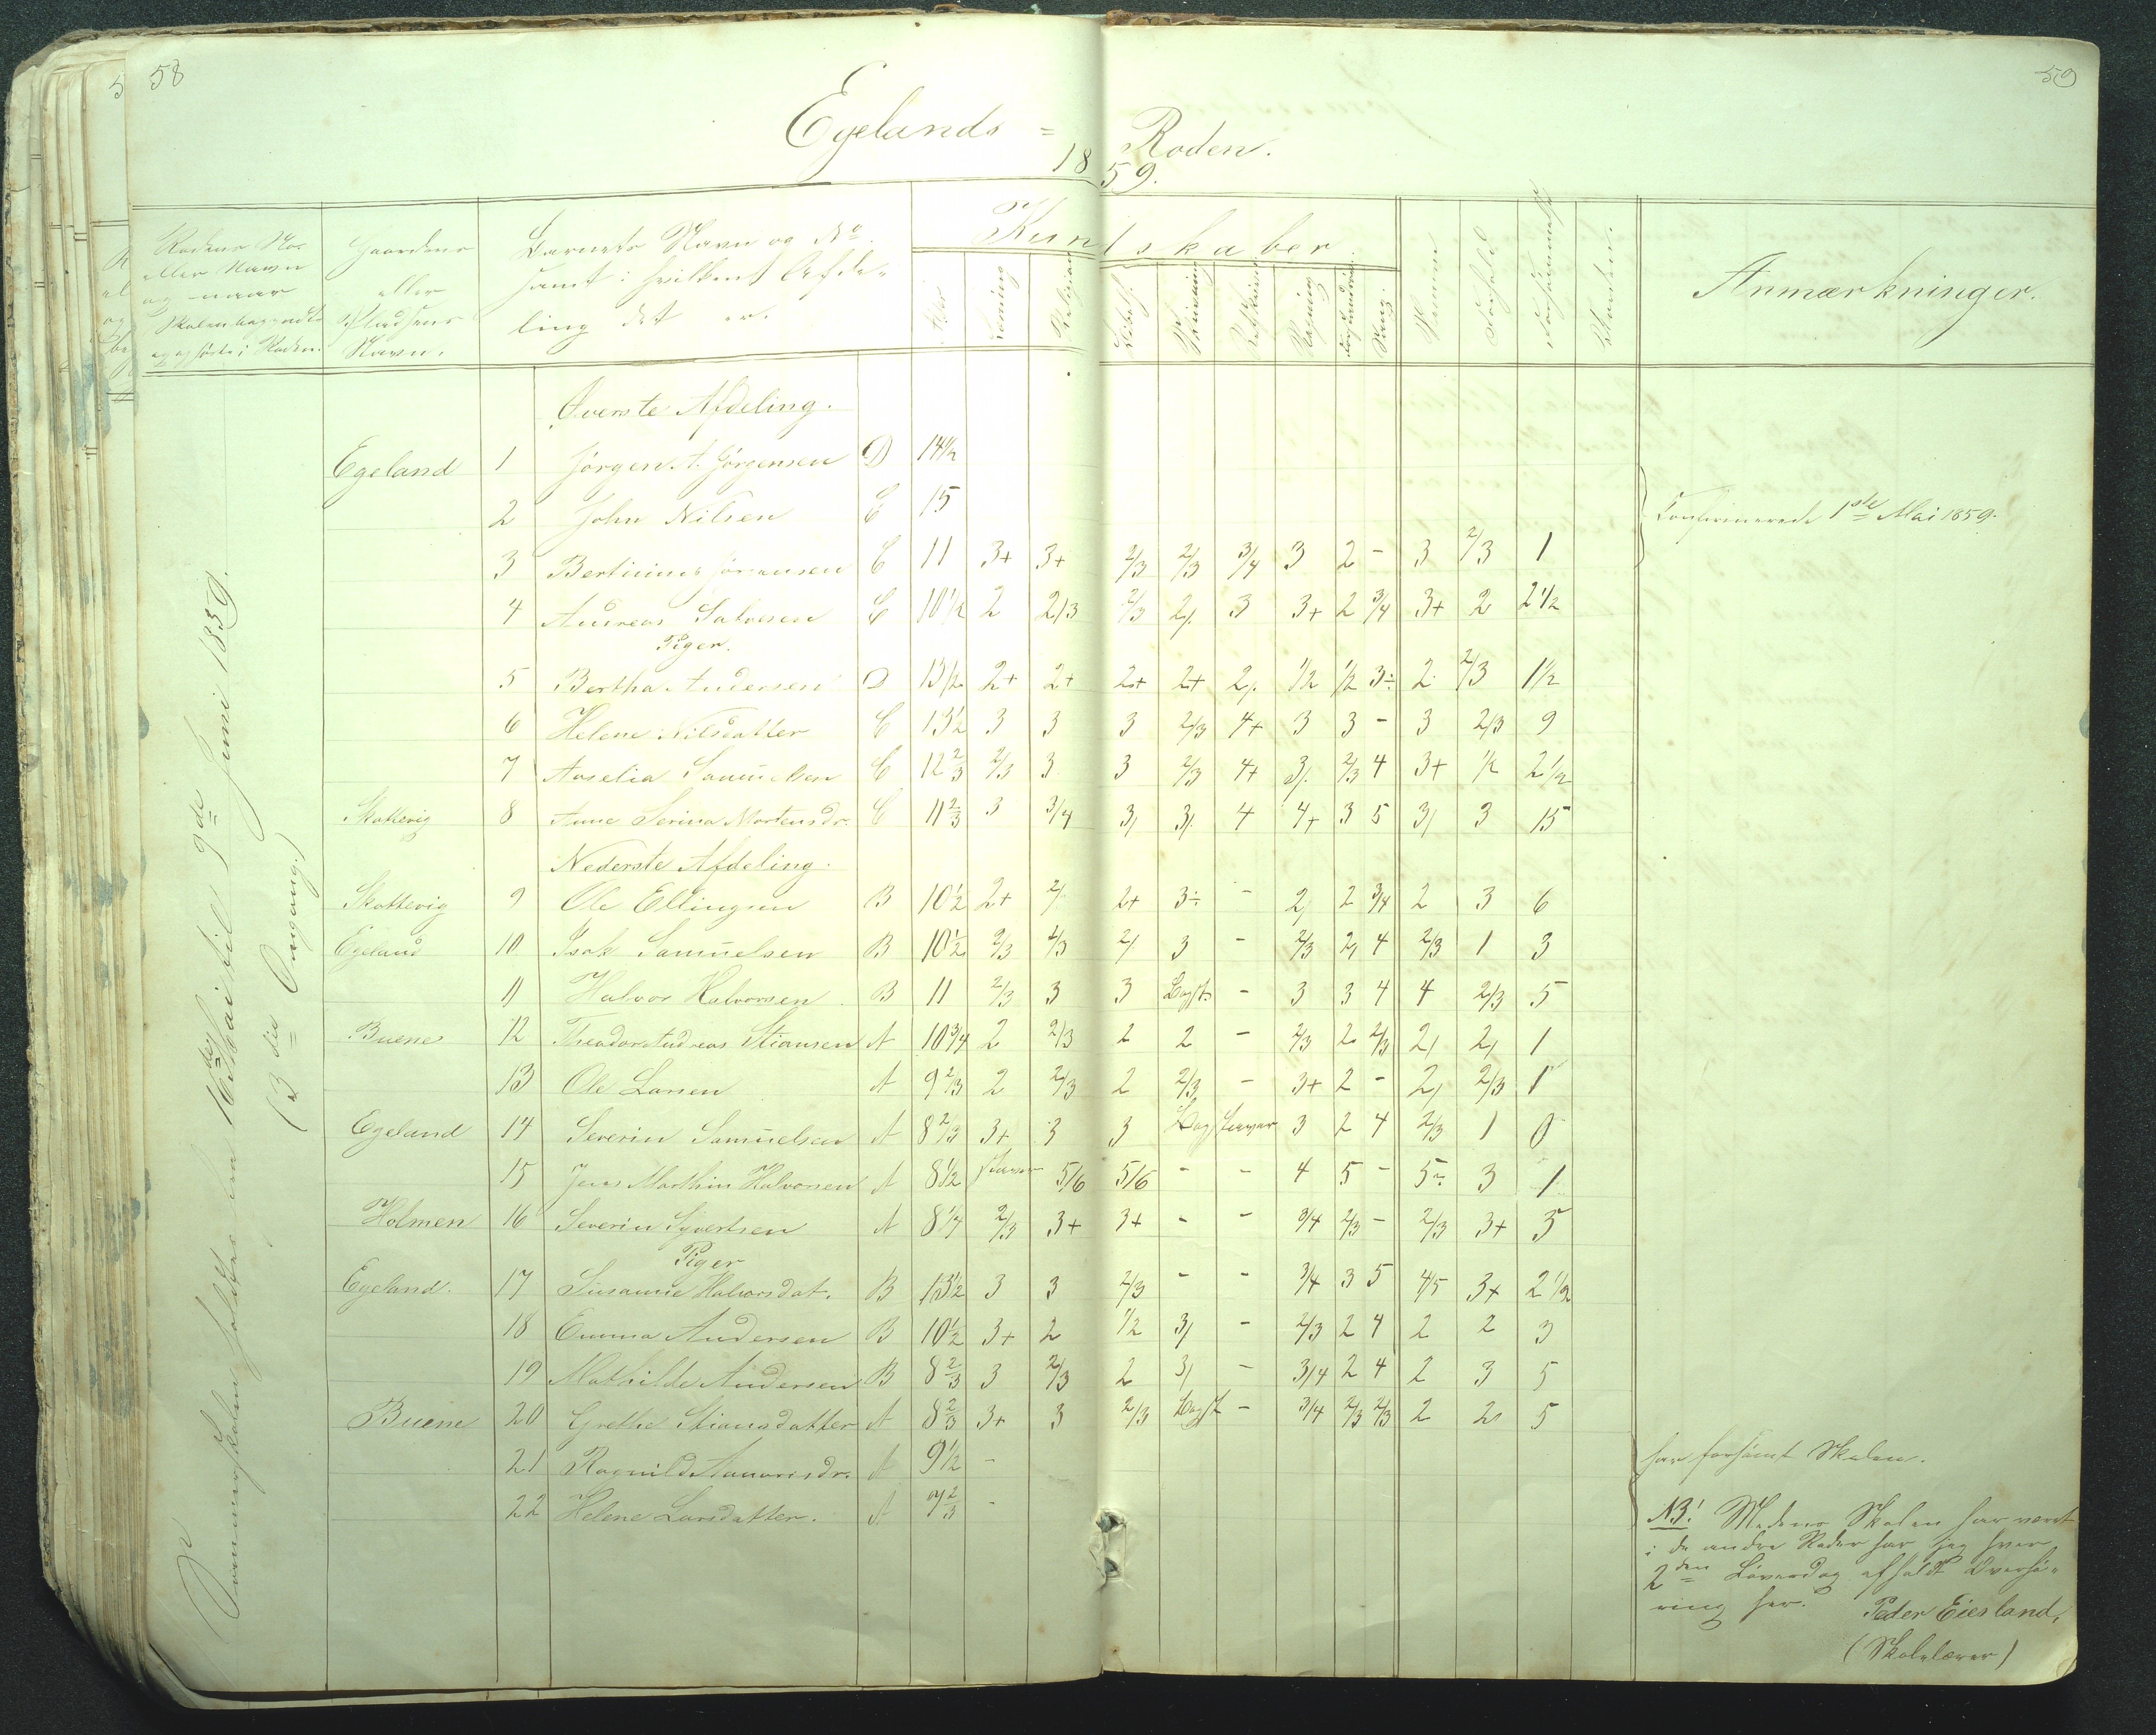 58
59
Egelands = Roden.
1859.
Rodens No.
eller Navn
og naar
Skolen begyndte
og ophørte i Roden.
Gaardens
eller
Pladsens
Navn.
Barnets Navn og No.
samt i hvilken Afde-
ling det er.
Kundskaber.
Alder
Læsning
Religion
Bibelh.
Skrivning
Regning
Sang.
Evne
Forhold
Forsømmelse
Anmærkninger.
Sommerskolen holdtes fra 16de Mai til 9de Juni 1859.
(3die Omgang.)
Øverste Afdeling.
Egeland 1 Jørgen A. Jørgensen D 14½
2 John Nilsen C 15
Confirmerede 1ste Mai 1859.
3 Bertinius Jørgensen C 11 3+ 3+ 2/3 2/3 3/4 3 2 - 3 2/3 1
4 Andreas Salvesen C 10½ 2 2/3 2/3 2/. 3 3+ 2 3/4 3+ 2 2½
Piger.
5 Bertha Andersen D 13½ 2+ 2+ 2+ 2+ 2/. 1/2 1/2 3÷ 2 2/3 1½
6 Helene Nilsdatter C 13½ 3 3 3 2/3 4+ 3 3 - 3 2/3 9
7 Aaselia Samuelsen C 12 2/3 2/3 3 3 2/3 4+ 3/. 2/3 4 3+ 1/2 2½
Skottevig 8 Anne Serina Mortensdr. C 11 2/3 3 3/4 3/ 3/. 4 4+ 3 5 3/ 3 15
Nederste Afdeling.
Skottevig 9 Ole Ellingsen B 10½ 2+ 2/. 2+ 3÷ - 2/ 2 3/4 2 3 6
Egeland 10 Isak Samuelsen B 10½ 2/3 2/3 2/. 3 - 2/3 2/ 4 2/3 1 3
11 Halvor Halvorsen B 11 2/3 3 3 Bogst. - 3 3 4 4 2/3 5
Buene 12 Theodor Andreas Stiansen A 10¾ 2 2/3 2 2 - 2/3 2 2/3 2/ 2/ 1
13 Ole Larsen A 9 2/3 2 2/3 2 2/3 - 3+ 2 - 2/ 2/3 1
Egeland 14 Severin Samuelsen A 8 2/3 3+ 3 3 Bogstaver 3 2 4 2/3 1 0
15 Jens Marthin Halvorsen A 8½ staver 5/6 5/6 - - 4 5 - 5÷ 3 1
Holmen 16 Severin Syvertsen A 8¼ 2/3 3+ 3+ - - 3/4 2/3 - 2/3 3+ 3
Piger
Egeland. 17 Susanne Halvorsdat. B 13½ 3 3 2/3 - - 3/4 3 5 4/5 3+ 2½
18 Emma Andersen B 10½ 3+ 2 1/2 3/ - 2/3 2 4 2 2 3
19 Mathilde Andersen B 8 2/3 3 2/3 2 3/ - 3/4 2 4 2 3 5
Buene 20 Grethe Stiansdatter A 8 2/3 3+ 3 2/3 Bogst - 3/4 2/3 2/3 2 2 5
21 Ragnild Aanonsdr. A 9½ -
22 Helene Larsdatter. A 7 2/3 -
har forsømt Skolen.
NB! Medens Skolen har været
i de andre Roder har jeg hver
2den Løverdag afholdt Overhø-
ring her.
Peder Eiesland,
(Skolelærer)